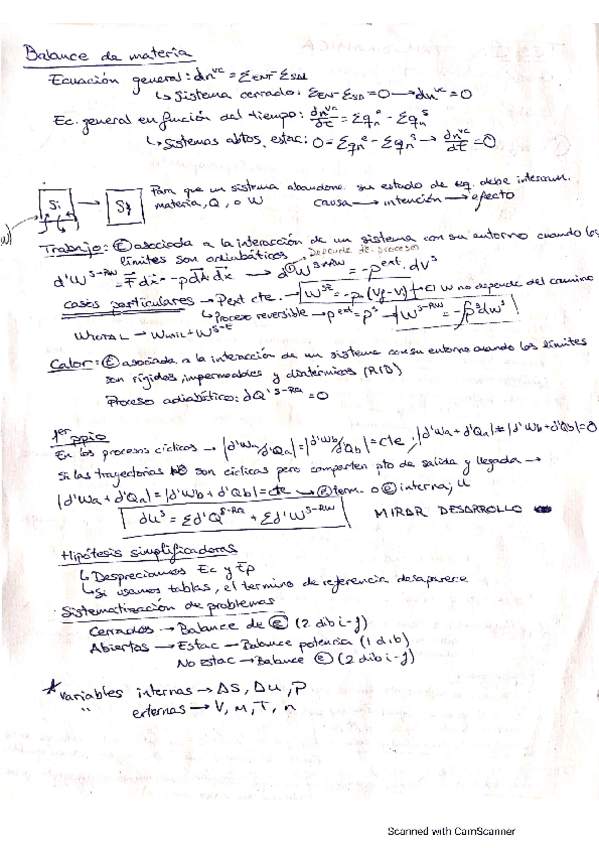 Balance de materia
Ecuación general: dn^vc = Σ_ENT - Σ_SAL
↳ Sistema cerrado: Σ_ENT - Σ_SA = 0 → dn^vc = 0
Ec. general en función del tiempo: dn^vc/dt = Σq_n^e - Σq_n^s
↳ Sistemas abtos, estac: 0 = Σq_n^e - Σq_n^s → dn^vc/dt = 0
Si → Sf Para que un sistema abandone su estado de eq. debe intercam.
materia, Q, o W causa → intención → efecto
Trabajo: Ⓔ asociada a la interacción de un sistema con su entorno cuando los
límites son adiabáticos Depende de proceso
d'W^S-RW = F dx = -pA dx → d'W^S-RW = -p^ext. dV^S
casos particulares → Pext cte. → W^SE = -p (Vf - Vi) → El W no depende del camino
↳ Proceso reversible → p^ext = p^S → W^S-RW = -∫p^S dV^S
Calor: Ⓔ asociada a la interacción de un sistema con su entorno cuando los límites
son rígidos, impermeables y diatérmicos (RID)
Proceso adiabático: dQ'^S-RQ = 0
1er ppio
En los procesos cíclicos → |d'Wa/d'Qa| = |d'Wb/d'Qb| = cte; |d'Wa + d'Qa| = |d'Wb + d'Qb| = 0
Si las trayectorias NO son cíclicas pero comparten pto de salida y llegada →
|d'Wa + d'Qa| = |d'Wb + d'Qb| = cte → Ⓔ term. o Ⓔ interna, U
dU^S = Σd'Q^S-RQ + Σd'W^S-RW MIRAR DESARROLLO
Hipótesis simplificadoras
↳ Despreciamos Ec y Ep
↳ Si usamos tablas, el termino de referencia desaparece
Sistematización de problemas
Cerrados → Balance de Ⓔ (2 dib i-f)
Abiertos → Estac → Balance potencia (1 dib)
No Estac → Balance Ⓔ (2 dib i-f)
* Variables internas → ΔS, ΔU, P
" externas → V, m, T, n
Scanned with CamScanner